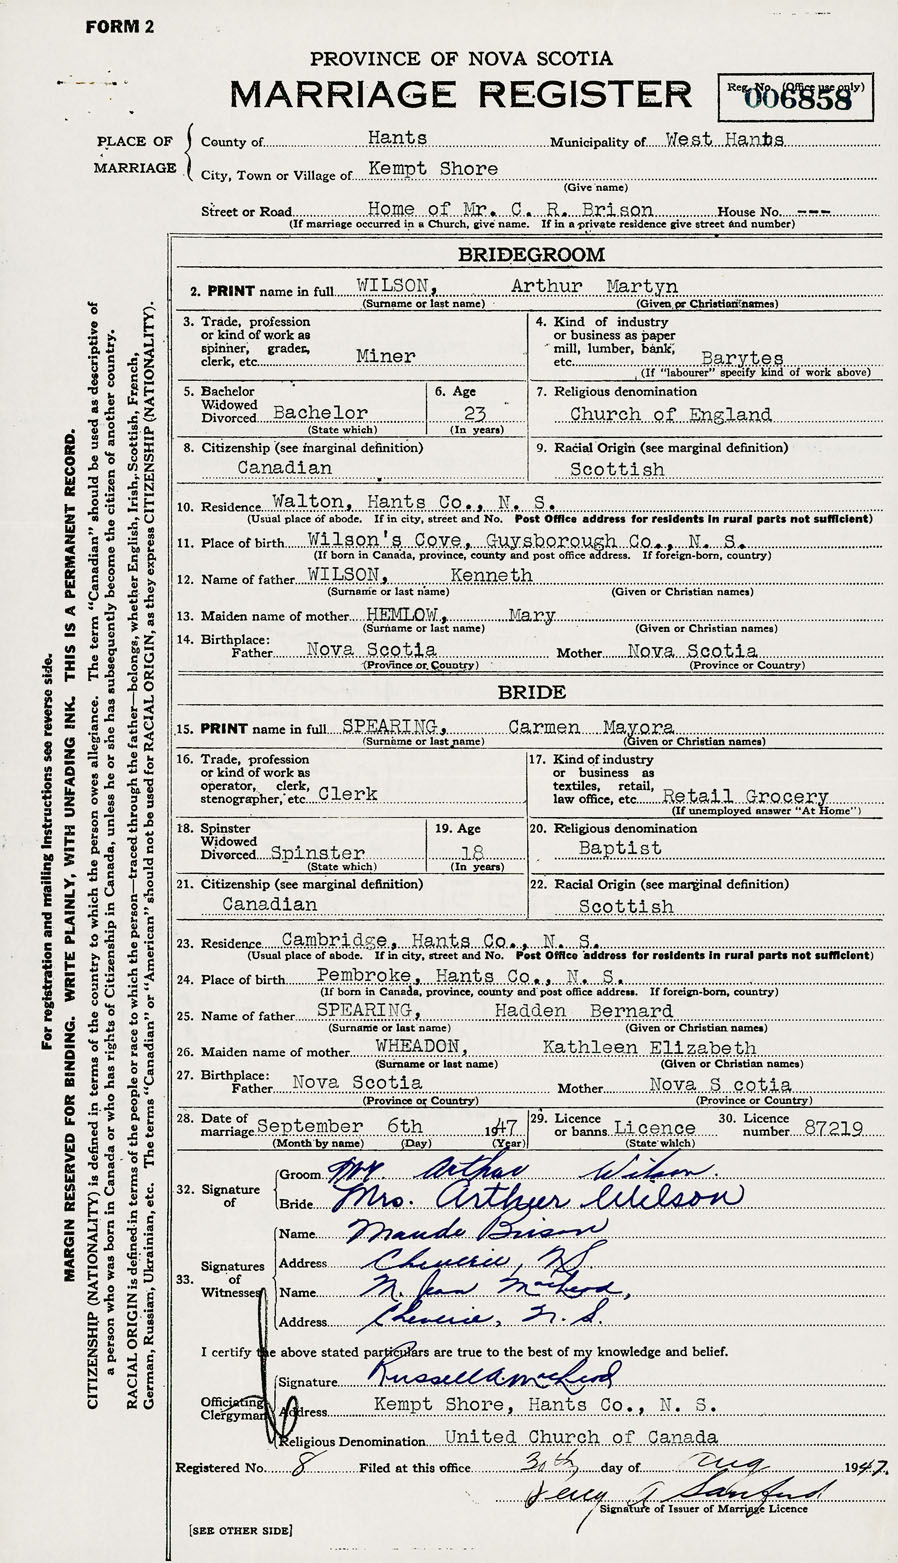 FORM 2
PROVINCE OF NOVA SCOTIA
MARRIAGE REGISTER
Reg. No. (Office use only)
006858
PLACE OF MARRIAGE
County of Hants Municipality of West Hants
City, Town or Village of Kempt Shore
(Give name)
Street or Road Home of Mr. C. R. Brison House No. ---
(If marriage occurred in a Church, give name. If in a private residence give street and number)
BRIDEGROOM
2. PRINT name in full WILSON, Arthur Martyn
(Surname or last name) (Given or Christian names)
3. Trade, profession or kind of work as spinner, grader, clerk, etc. Miner
4. Kind of industry or business as paper mill, lumber, bank, etc. Barytes
(If "labourer" specify kind of work above)
5. Bachelor Widowed Divorced Bachelor
(State which)
6. Age 23
(In years)
7. Religious denomination
Church of England
8. Citizenship (see marginal definition)
Canadian
9. Racial Origin (see marginal definition)
Scottish
10. Residence Walton, Hants Co., N. S.
(Usual place of abode. If in city, street and No. Post Office address for residents in rural parts not sufficient)
11. Place of birth Wilson's Cove, Guysborough Co., N. S.
(If born in Canada, province, county and post office address. If foreign-born, country)
12. Name of father WILSON, Kenneth
(Surname or last name) (Given or Christian names)
13. Maiden name of mother HEMLOW, Mary
(Surname or last name) (Given or Christian names)
14. Birthplace:
Father Nova Scotia Mother Nova Scotia
(Province or Country) (Province or Country)
BRIDE
15. PRINT name in full SPEARING, Carmen Mayora
(Surname or last name) (Given or Christian names)
16. Trade, profession or kind of work as operator, clerk, stenographer, etc. Clerk
17. Kind of industry or business as textiles, retail, law office, etc. Retail Grocery
(If unemployed answer "At Home")
18. Spinster Widowed Divorced Spinster
(State which)
19. Age 18
(In years)
20. Religious denomination
Baptist
21. Citizenship (see marginal definition)
Canadian
22. Racial Origin (see marginal definition)
Scottish
23. Residence Cambridge, Hants Co., N. S.
(Usual place of abode. If in city, street and No. Post Office address for residents in rural parts not sufficient)
24. Place of birth Pembroke, Hants Co., N. S.
(If born in Canada, province, county and post office address. If foreign-born, country)
25. Name of father SPEARING, Hadden Bernard
(Surname or last name) (Given or Christian names)
26. Maiden name of mother WHEADON, Kathleen Elizabeth
(Surname or last name) (Given or Christian names)
27. Birthplace:
Father Nova Scotia Mother Nova S cotia
(Province or Country) (Province or Country)
28. Date of marriage September 6th 1947
(Month by name) (Day) (Year)
29. Licence or banns Licence
(State which)
30. Licence number 87219
32. Signature of
Groom Mr. Arthur Wilson.
Bride Mrs. Arthur Wilson
33. Signatures of Witnesses
Name Maude Brison
Address Cheverie, N.S.
Name M. Jean MacLeod,
Address Cheverie, N. S.
I certify the above stated particulars are true to the best of my knowledge and belief.
Officiating Clergyman
Signature Russell A MacLeod
Address Kempt Shore, Hants Co., N. S.
Religious Denomination United Church of Canada
Registered No. 8 Filed at this office 30th day of Aug 1947.
Percy A Sanford
Signature of Issuer of Marriage Licence
[SEE OTHER SIDE]
For registration and mailing instructions see reverse side.
MARGIN RESERVED FOR BINDING. WRITE PLAINLY, WITH UNFADING INK. THIS IS A PERMANENT RECORD.
CITIZENSHIP (NATIONALITY) is defined in terms of the country to which the person owes allegiance. The term "Canadian" should be used as descriptive of
a person who was born in Canada or who has rights of Citizenship in Canada, unless he or she has subsequently become the citizen of another country.
RACIAL ORIGIN is defined in terms of the people or race to which the person—traced through the father—belongs, whether English, Irish, Scottish, French,
German, Russian, Ukrainian, etc. The terms "Canadian" or "American" should not be used for RACIAL ORIGIN, as they express CITIZENSHIP (NATIONALITY).